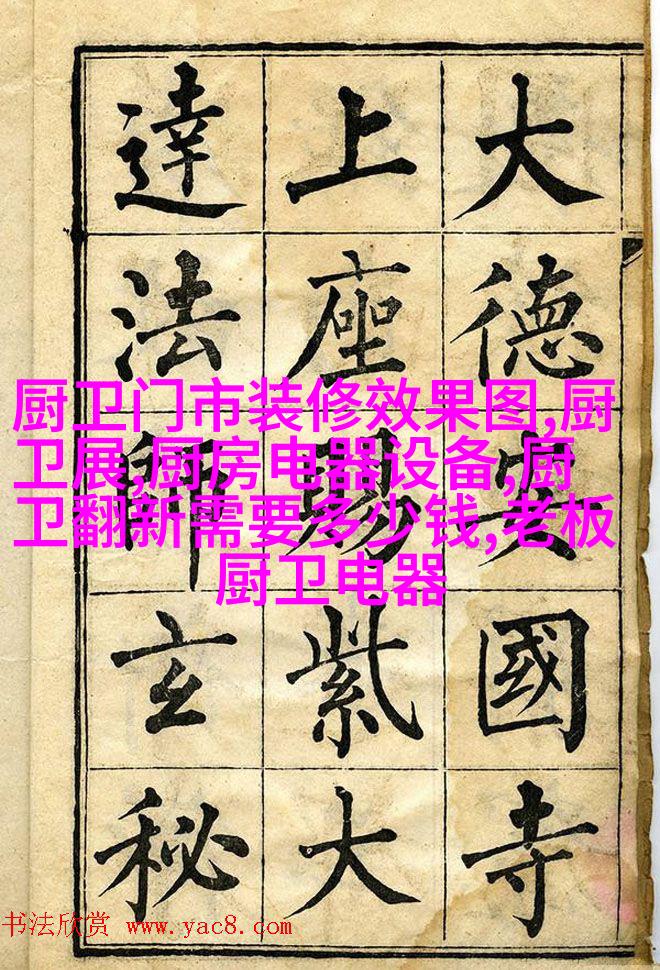 大德安國寺
上座賜紫大
達法師玄秘
厨卫门市装修效果图,厨
卫展,厨房电器设备,厨
卫翻新需要多少钱,老板
厨卫电器
书法欣赏 www.yac8.com